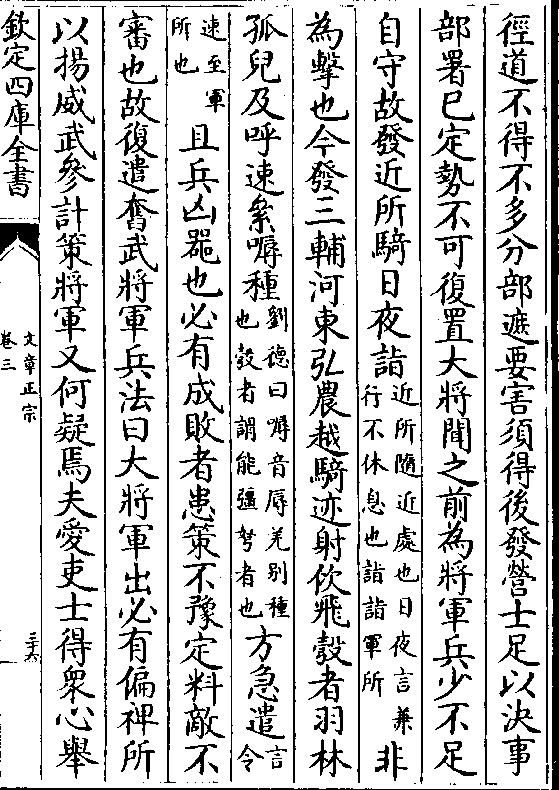 徑道不得不多分部遮要害須得後發營士足以決事
部署已定勢不可復置大將聞之前為將軍兵少不足
自守故發近所騎日夜詣近所隨近處也日夜言兼行不休息也詣詣軍所非
為擊也今發三輔河東弘農越騎迹射佽飛彀者羽林
孤兒及呼速絫嗕種劉德曰嗕音辱羌别種也彀者謂能彊弩者也方急遣言令
速至軍所也且兵凶器也必有成敗者患策不豫定料敵不
審也故復遣奮武將軍兵法曰大將軍出必有偏裨所
以揚威武參計策將軍又何疑焉夫愛吏士得衆心舉
欽定四庫全書
文章正宗
卷三
三十六